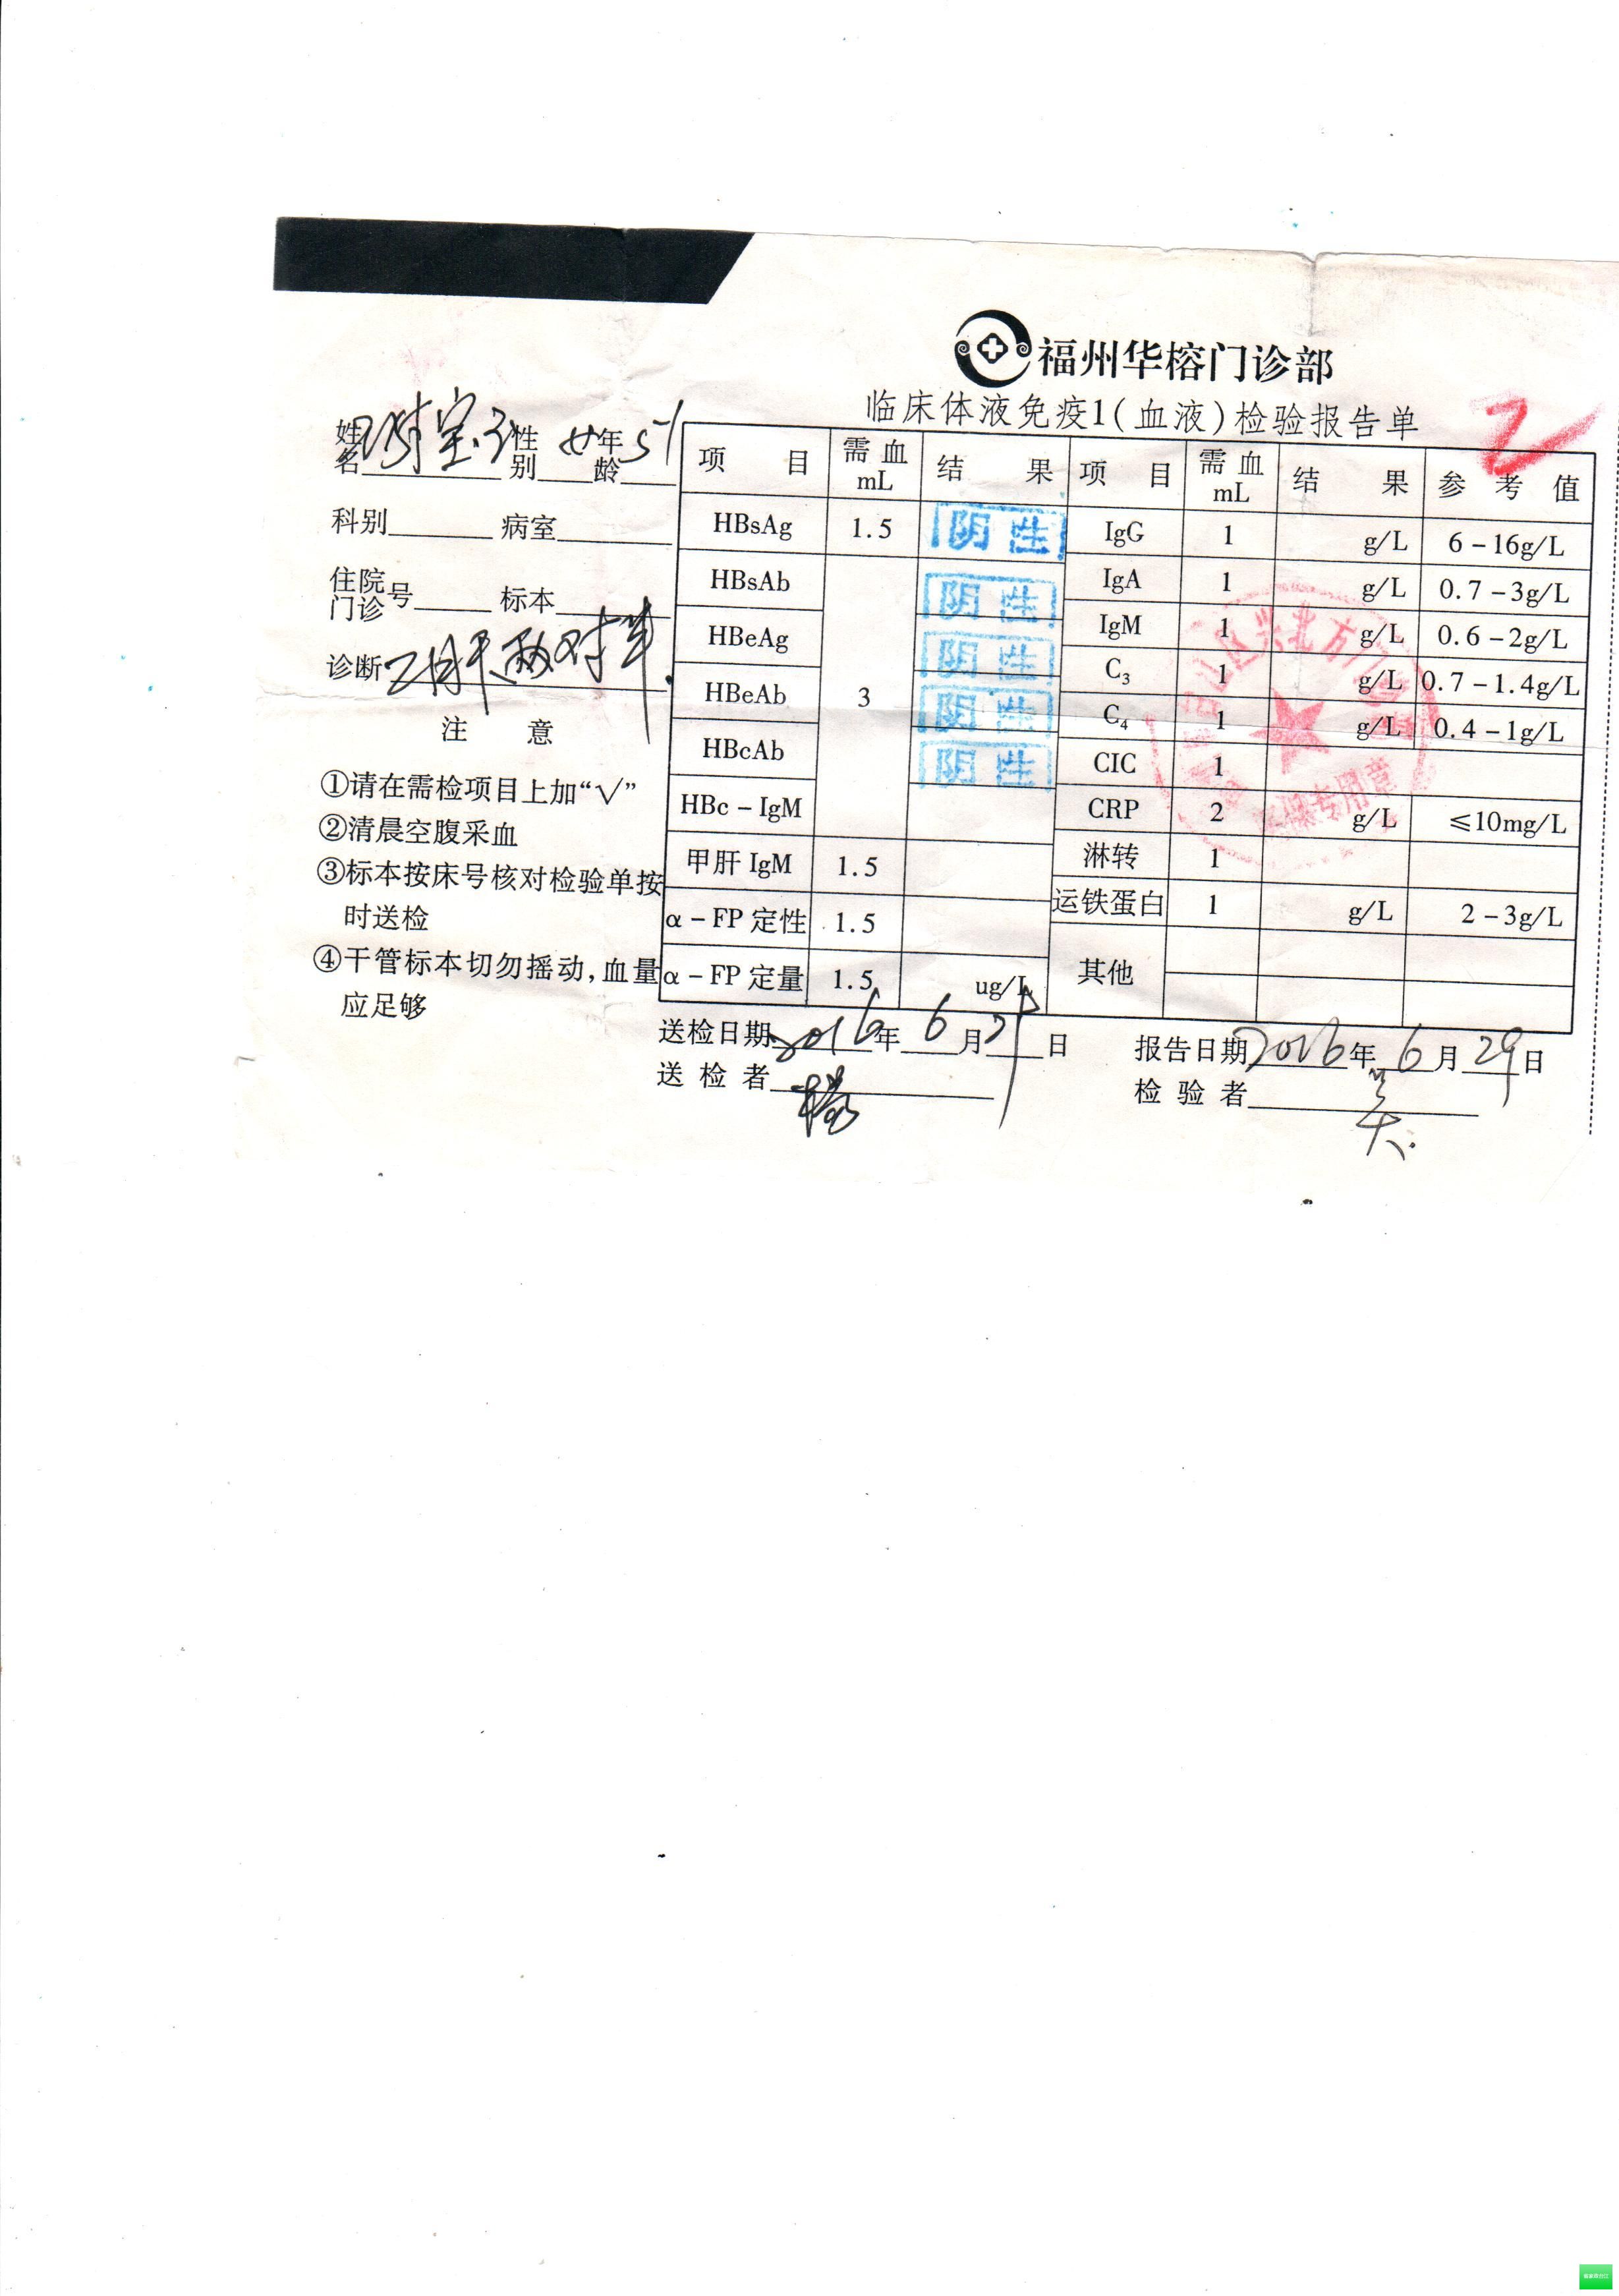 福州华榕门诊部
临床体液免疫1(血液)检验报告单
姓名 性别 女 年龄 51
科别 病室
住院门诊号 标本
诊断 乙肝两对半
注 意
①请在需检项目上加“√”
②清晨空腹采血
③标本按床号核对检验单按
时送检
④干管标本切勿摇动,血量
应足够
项 目 需血mL 结 果 项 目 需血mL 结 果 参 考 值
HBsAg 1.5 阴性 IgG 1 g/L 6-16g/L
HBsAb 阴性 IgA 1 g/L 0.7-3g/L
HBeAg 阴性 IgM 1 g/L 0.6-2g/L
HBeAb 3 阴性 C₃ 1 g/L 0.7-1.4g/L
HBcAb 阴性 C₄ 1 g/L 0.4-1g/L
HBc-IgM CIC 1
CRP 2 g/L ≤10mg/L
甲肝 IgM 1.5 淋转 1
α-FP 定性 1.5 运铁蛋白 1 g/L 2-3g/L
α-FP 定量 1.5 ug/L 其他
专用章
送检日期 2016年 6月 日 报告日期 2016年 6月 29日
送 检 者 检 验 者